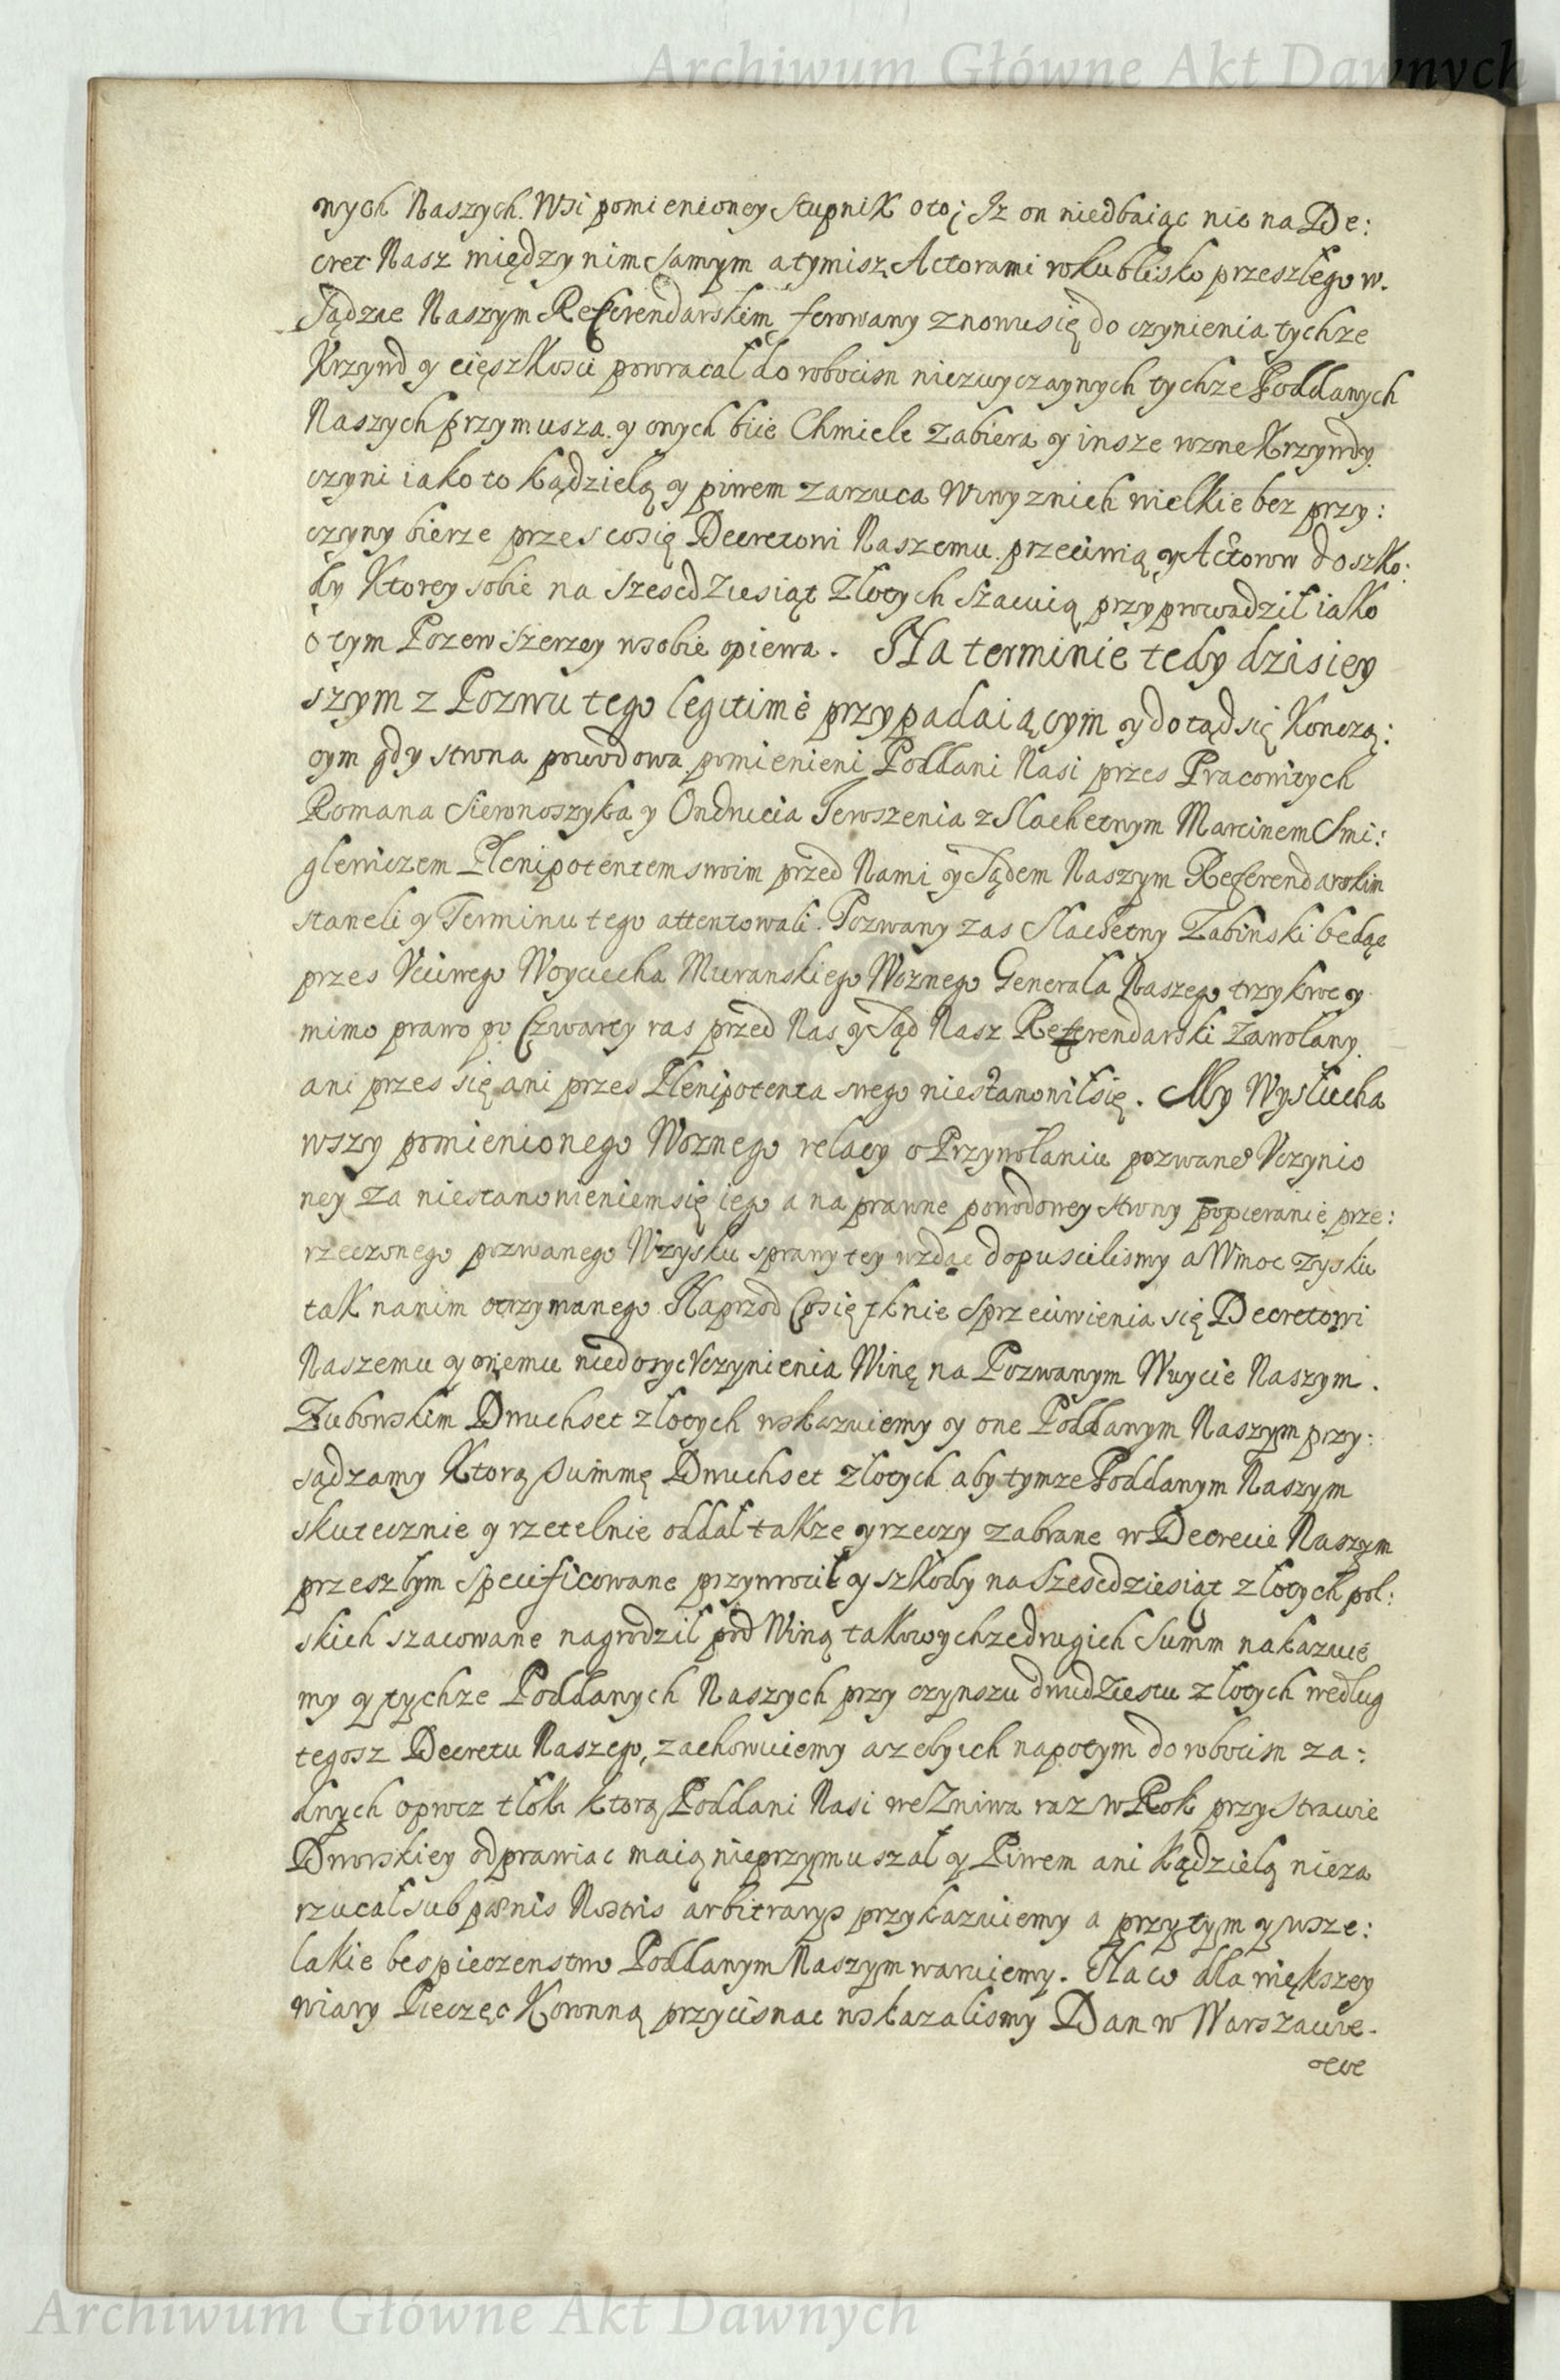 Archiwum Główne Akt Dawnych
nych Naszych. Wsi pomienioney Stupnik oto; Iz on niedbaiąc nic na De:
cret Nasz między nim samym a tymisz Actorami roku blisko przeszłego w.
Sądzie Naszym Referendarskim ferowany znowu się do czynienia tychze
Krzywd y cięszkosci powracal do robocisn niezwyczaynych tychze Poddanych
Naszych przymusza. y onych biie Chmiele zabiera y insze rozne Krzywdy
czyni iako to kądzielą y piwem zarzuca Winy znich wielkie bez przy:
czyny bierze przes co się Decretowi Naszemu. przeciwią y Actorow do szko:
dy Ktorey sobie na szescdziesiąt Złotych szacuią przyprowadził iako
o tym Pozew szerzey w sobie opiewa. Na terminie tedy dzisiey
szym z Pozwu tego legitime przypadaiącym y dotąd się Kończą:
cym gdy strona powodowa pomienieni Poddani Nasi przes Pracowitych
Romana Siewnoszyka y Ondrucia Terszenia z Slachetnym Marcinem Smi:
glewiczem Plenipotentem swoim przed Nami y Sądem Naszym Referendarskim
staneli y Terminu tego attentowali. Pozwany zas Slachetny Zabinski bedąc
przes Vcciwego Woyciecha Muranskiego Woznego Generala Naszego trzykroc y
mimo prawo po Czwarty ras przed Nas y Sąd Nasz Referendarski zawolany.
ani przes się ani przes Plenipotenta swego niestanowił się. My Wysłucha
wszy pomienionego Woznego relacy o Przywołaniu pozwane° Vczynio
ney za niestanowieniem się iego a na prawne powodowey strony popieranie prze:
rzeczonego pozwanego W zysku sprawy tey wzdac dopuscilismy a Wmoc zysku
tak na nim otrzymanego. Naprzod Co się tknie sprzeciwienia się Decretowi
Naszemu y onemu niedosyc Vczynienia Winę na Pozwanym Wuycie Naszym.
Zubowskim Dwuchset złotych wskazuiemy y one Poddanym Naszym przy:
sądzamy Ktorą summę Dwuchset złotych aby tymze Poddanym Naszym
skutecznie y rzetelnie oddał takze y rzeczy zabrane w Decrecie Naszym
przeszłym specificowane przywrocił y szkody na szescdziesiąt złotych pol:
skich szacowane nagrodzil pod Winą takowychze drugich Summ nakazuie
my y tychze Poddanych Naszych przy czynszu dwudziestu złotych według
tegosz Decretu Naszego, zachowuiemy a zeby ich napotym do robocisn za:
dnych oprocz tłoki ktorą Poddani Nasi we Zniwa raz w Rok przy Strawie
Dworskiey odprawiac maią nieprzymuszał y Piwem ani kądzielą nieza
rzucał sub pœnis Nostris arbitrarys przykazuiemy a przytym y wsze:
lakie bespieczenstwo Poddanym Naszym waruiemy. Na co dla większey
wiary Pieczęc Koronną przycisnac wskazalismy Dan w Warszawie.
Archiwum Główne Akt Dawnych